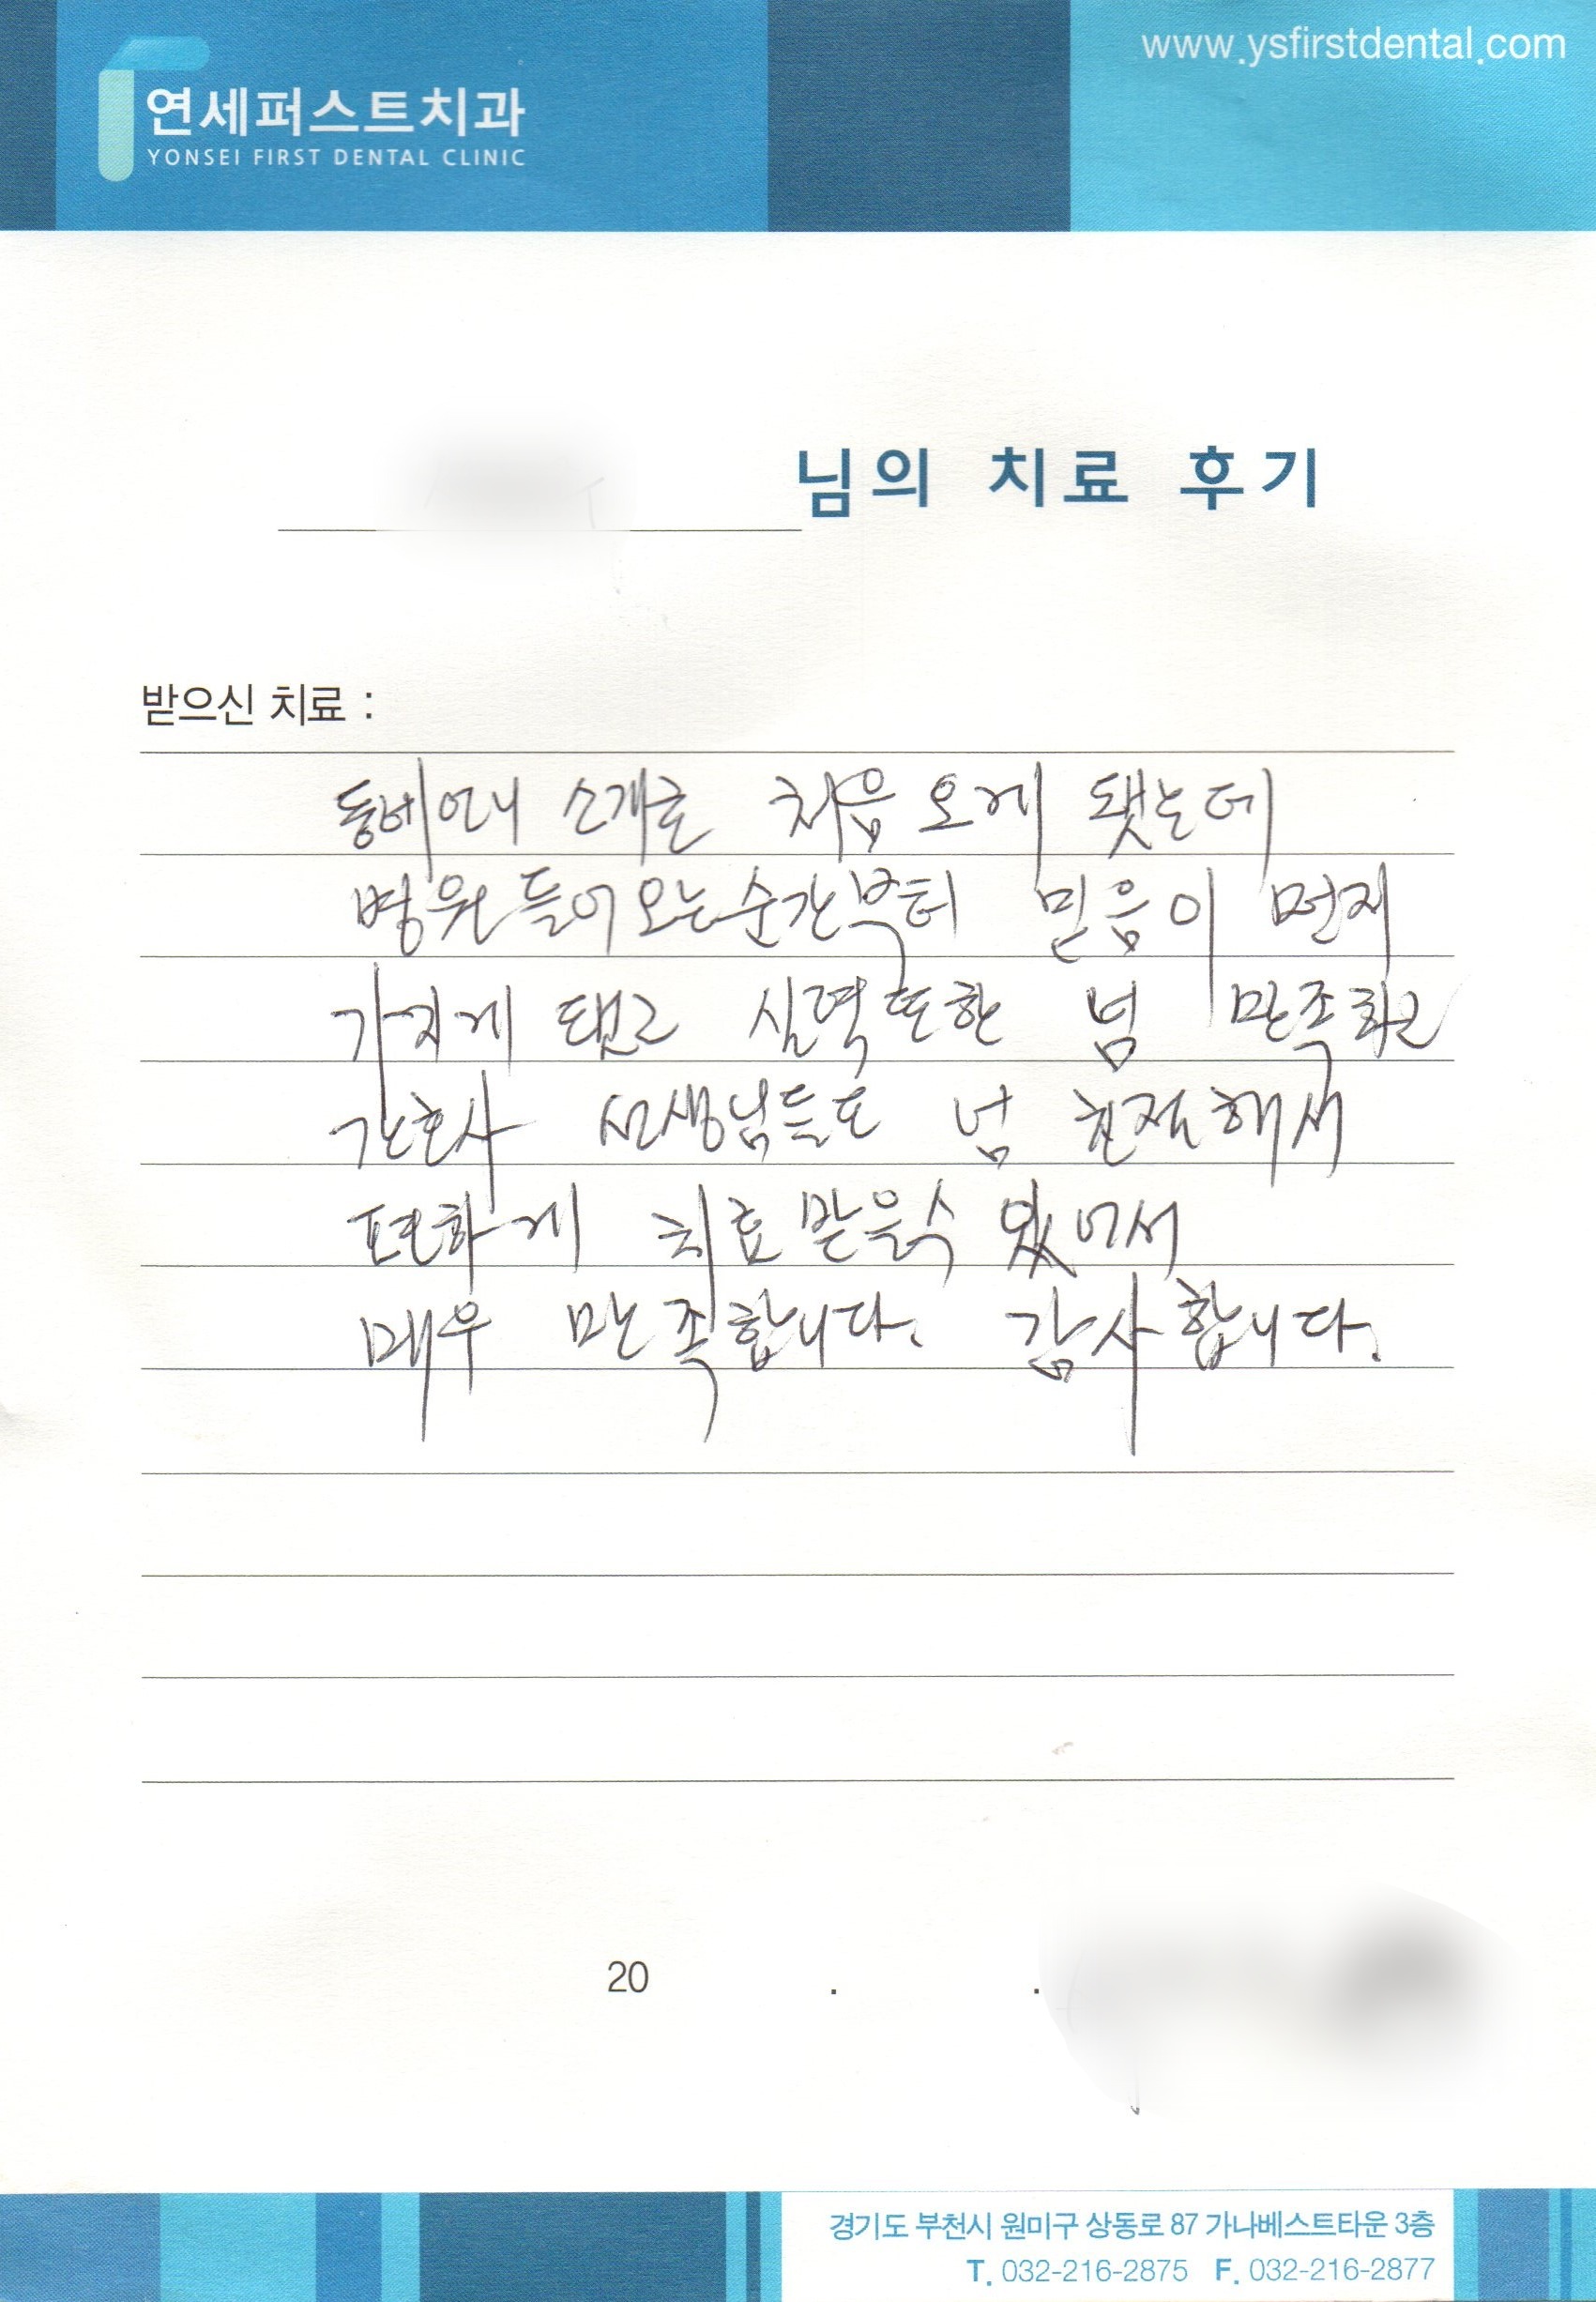 www.ysfirstdental.com
연세퍼스트치과
YONSEI FIRST DENTAL CLINIC
님의 치료 후기
받으신 치료 :
동네언니 소개로 처음 오게 됐는데
병원 들어오는순간부터 믿음이 먼저
가지게 됐고 실력또한 넘 만족하고
간호사 선생님들도 넘 친절해서
편하게 치료 받을수 있어서
매우 만족합니다. 감사합니다.
20 . .
경기도 부천시 원미구 상동로 87 가나베스트타운 3층
T. 032-216-2875 F. 032-216-2877